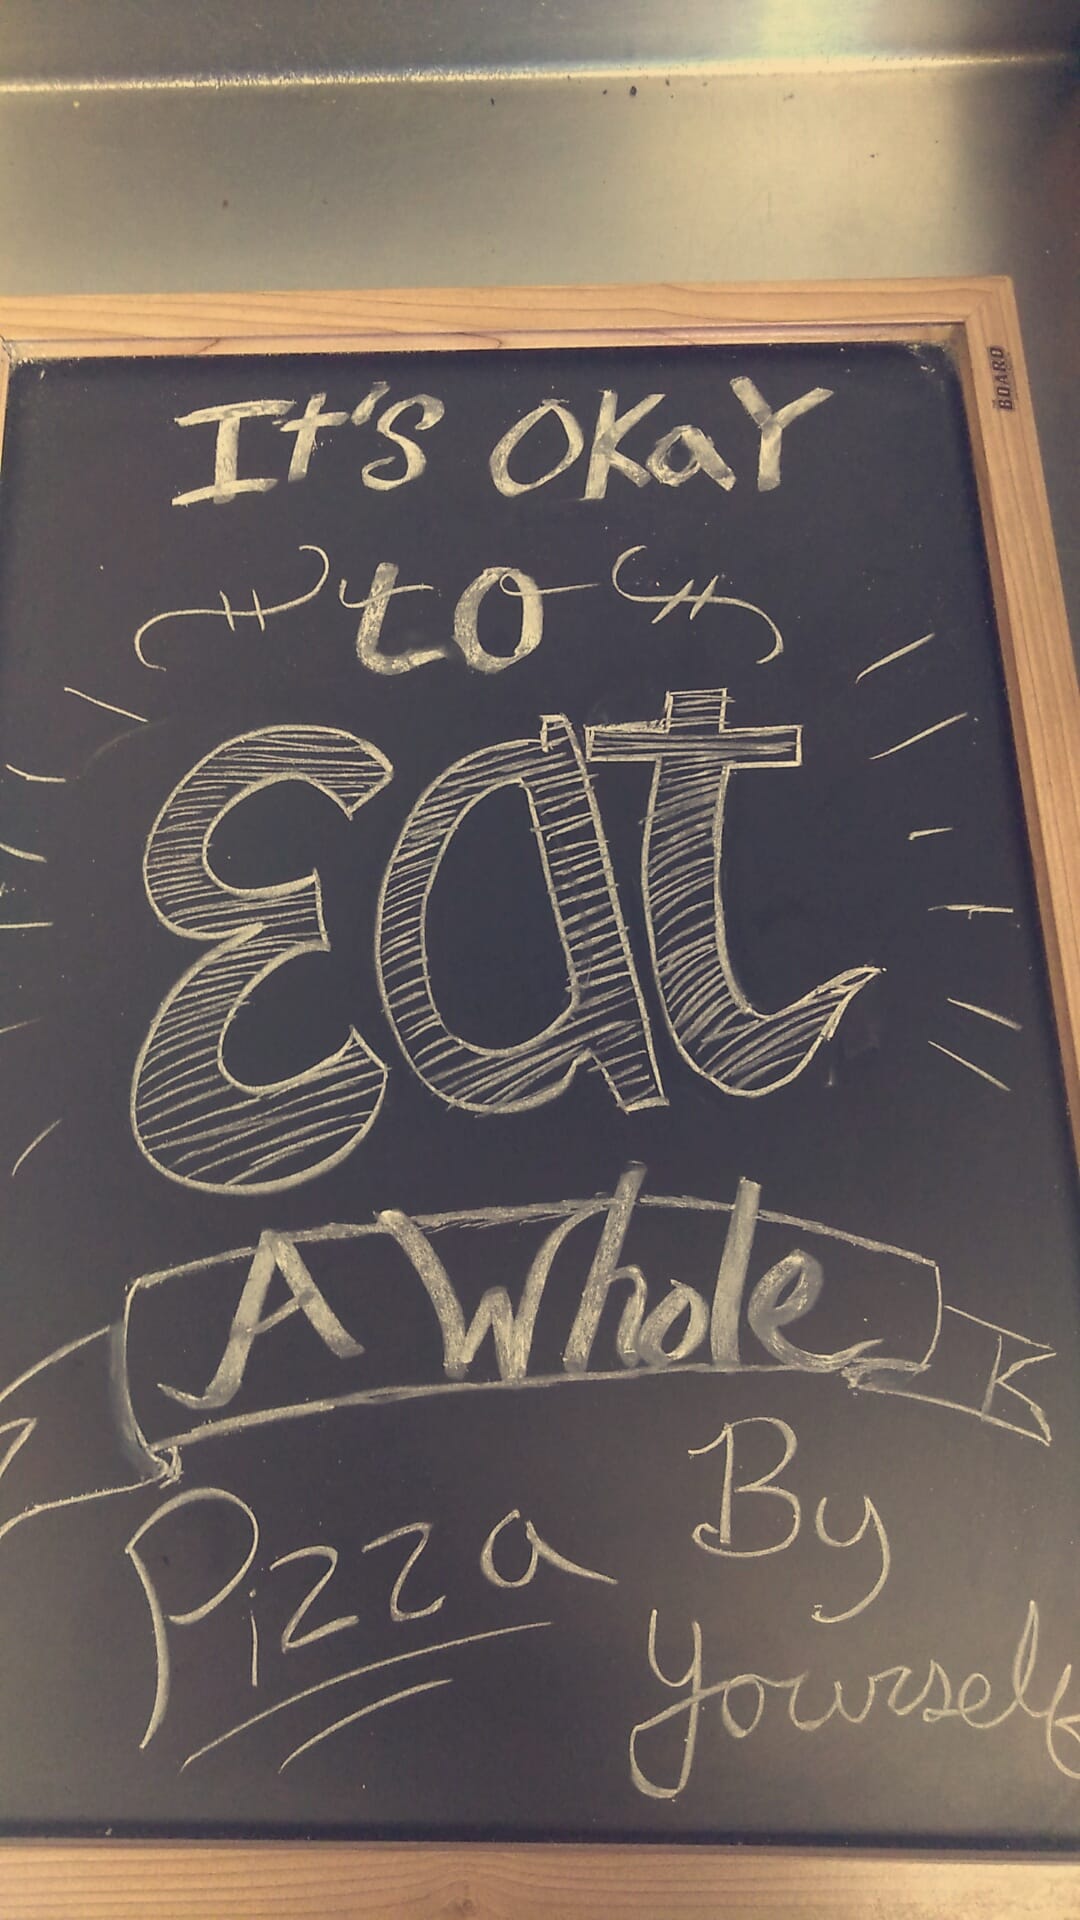 It's OKaY
to
Eat
A Whole
Pizza By
Yourself
BOARD